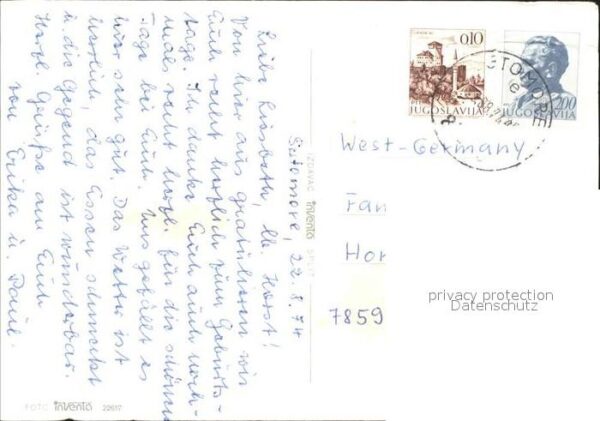 Sutomore, 22.8.74
Liebe Lisbeth, lb. Horst!
Von hier aus gratulieren wir
Euch recht herzlich zum Geburts-
tage. Ich danke Euch auch noch-
mals recht herzl. für die schönen
Tage bei Euch. Uns gefällt es
hier sehr gut. Das Wetter ist
herrlich, das Essen schmeckt
u. die Gegend ist wunderbar.
Herzl. Grüße an Euch
von Erika u. Paul.
FOTO inventa 22617
IZDAVAČ inventa SPLIT
0,10
PTT
JUGOSLAVIJA
2,00
JUGOSLAVIJA
SUTOMORE
West-Germany
Fam
Hor
7859
privacy protection
Datenschutz